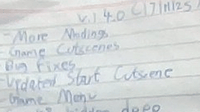 V.1.4.0 (17/11/25)
- More Nodings
- Game Cutscenes
- Bug Fixes
- Updated Start Cutscene
- Game Menu